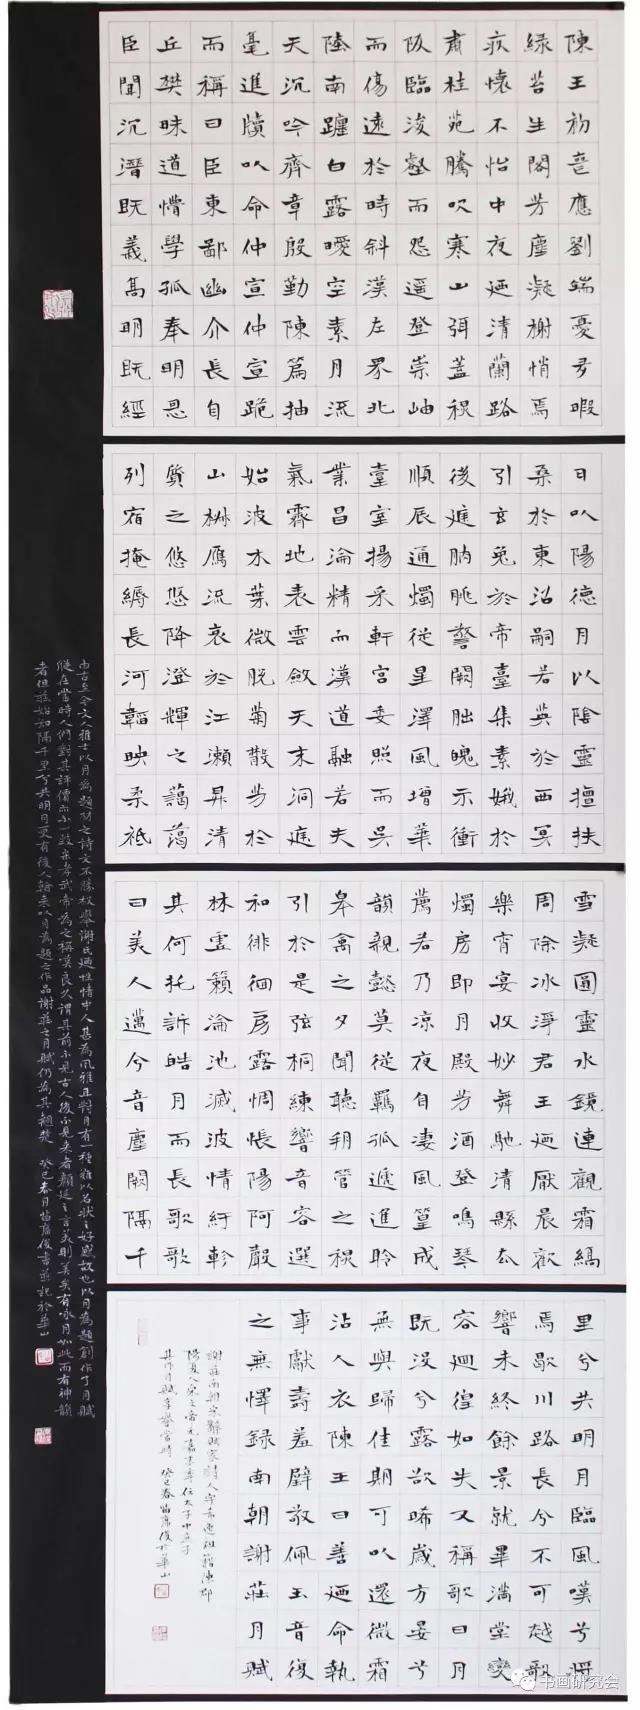 陳王初喪應劉端憂多暇
緑苔生閣芳塵凝榭悄焉
疚懷不怡中夜廼清蘭路
肅桂苑騰吹寒山弭蓋秋
阪臨浚壑而怨遥登崇岫
而傷遠於時斜漢左界北
陸南躔白露曖空素月流
天沉吟齊章殷勤陳篇抽
毫進牘以命仲宣仲宣跪
而稱曰臣東鄙幽介長自
丘樊昧道懵學孤奉明恩
臣聞沉潛既義高明既經
日以陽德月以陰靈擅扶
桑於東沼嗣若英於西冥
引玄兔於帝臺集素娥於
後庭朒朓警闕朏魄示衝
順辰通燭從星澤風增華
臺室揚采軒宮委照而吳
業昌淪精而漢道融若夫
氣霽地表雲斂天末洞庭
始波木葉微脫菊散芳於
山椒雁流哀於江瀨昇清
質之悠悠降澄輝之藹藹
列宿掩縟長河韜映柔祇
雪凝圓靈水鏡連觀霜縞
周除冰淨君王廼厭晨歡
樂宵宴收妙舞馳清縣去
燭房即月殿芳酒登鳴琴
薦若乃涼夜自淒風篁成
韻親懿莫從羈孤遞進聆
皋禽之夕聞聽朔管之秋
引於是弦桐練響音容選
和徘徊房露惆悵陽阿聲
林虛籟淪池滅波情紆軫
其何托訴皓月而長歌歌
曰美人邁兮音塵闕隔千
里兮共明月臨風嘆兮將
焉歇川路長兮不可越歌
響未終餘景就畢滿堂變
容迴徨如失又稱歌曰月
既沒兮露欲晞歲方晏兮
無與歸佳期可以還微霜
沾人衣陳王曰善廼命執
事獻壽羞璧敬佩玉音復
之無懌録南朝謝莊月賦
謝莊南朝宋辭賦家詩人字希逸祖籍陳郡
陽夏人宋文帝元嘉末年任太子中庶子
其作月賦享譽當時 癸巳春苗廣俊於華山
由古至今文人雅士以月為題材之詩文不勝枚舉謝氏廼性情中人甚為風雅且對月有一種難以名狀之好感故也以月為題創作了月賦
在當時人們對其評價亦不一致宋孝武帝為之稱嘆良久謂其前不見古人後不見來者顏延之言美則美矣有咏月如此而有神韻
者但莊始知隔千里兮共明月更有後人翰朶以月為題之作品謝莊之月賦仍為其翹楚 癸巳春月苗廣俊書並記於華山
书画研究会